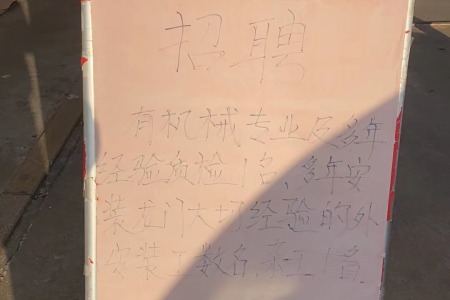 招聘
有机械专业及多年
经验质检1名、多年安
装龙门大切经验的外
安装工数名、工1名